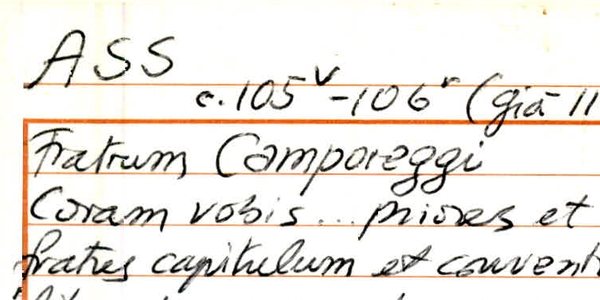 ASS
c. 105v-106r (già 11
Fratrum Camporeggi
Coram vobis... priores et
fratres capitulum et convent